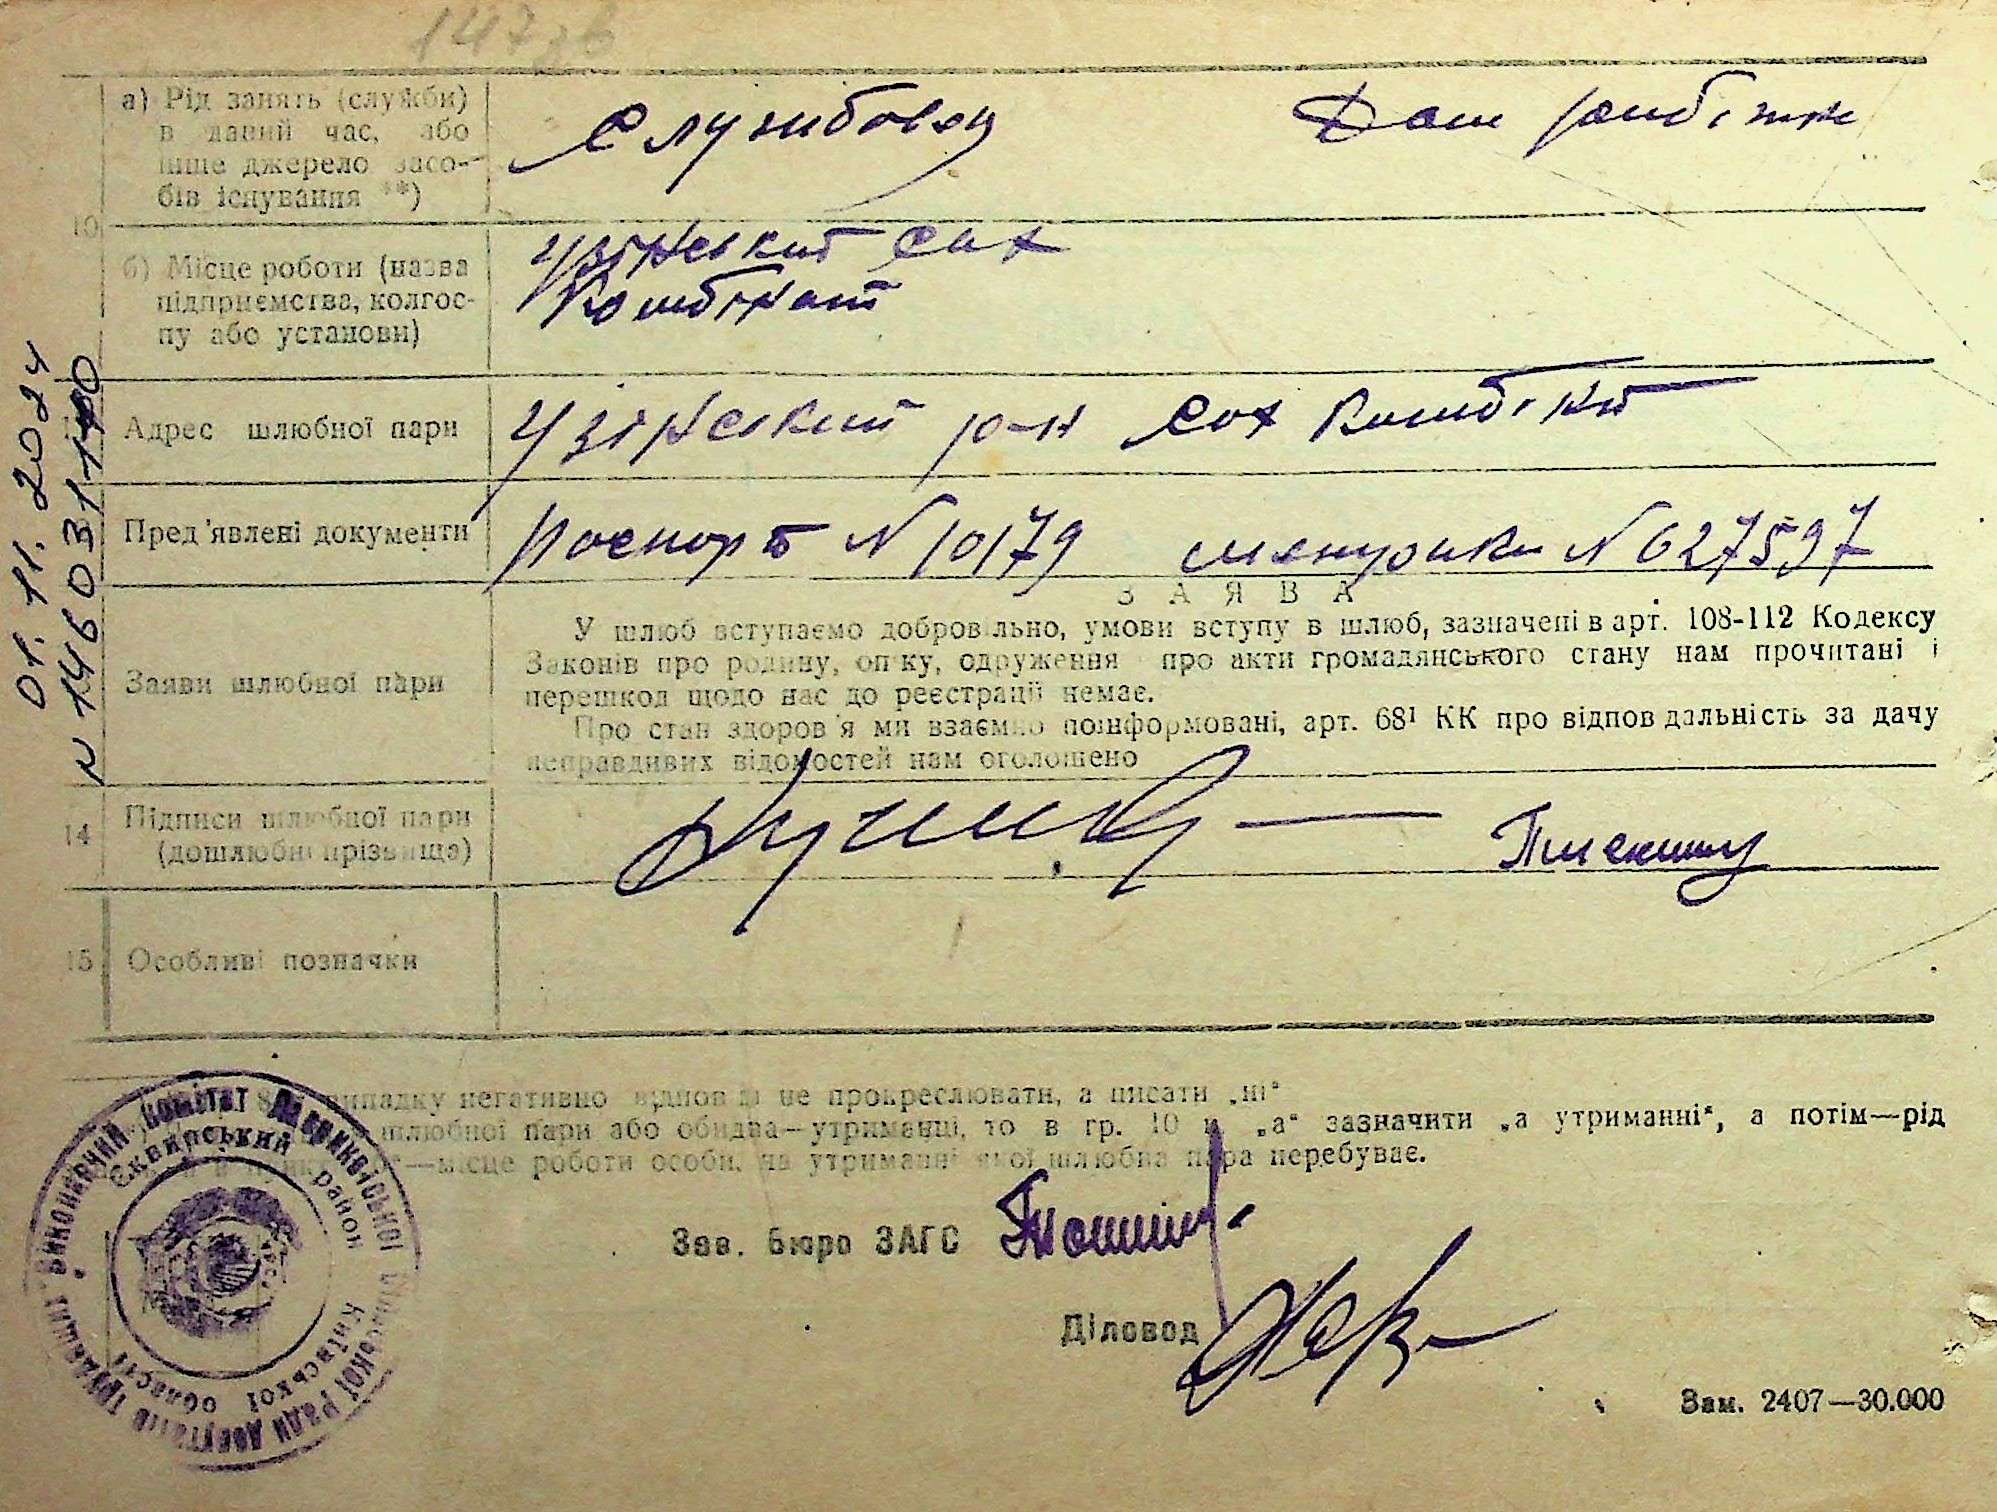 147зв
а) Рід занять (служби)
в даний час, або
інше джерело засо-
бів існування **)
Службовец
Дом робітн
10
б) Місце роботи (назва
підприємства, колгос-
пу або установи)
Узінський Сах
Комбінат
Адрес шлюбної пари
Узінский р-н Сах Комбікт
Пред'явлені документи
Поспорт № 10179
№ 627597
Заяви шлюбної пари
ЗАЯВА
У шлюб вступаємо добровільно, умови вступу в шлюб, зазначені в арт. 108-112 Кодексу
Законів про родину, опіку, одруження про акти громадянського стану нам прочитані і
перешкод щодо нас до реєстрації немає.
Про стан здоров'я ми взаємно поінформовані, арт. 68¹ КК про відповідальність за дачу
неправдивих відомостей нам оголошено
14
Підписи шлюбної пари
(дошлюбні прізвища)
15
Особливі позначки
випадку негативно відповіді не прокреслювати, а писати „ні"
шлюбної пари або обидва—утриманці, то в гр. 10 п. „а" зазначити „а утриманні", а потім—рід
—місце роботи особи, на утриманні якої шлюбна пара перебуває.
Зав. Бюро ЗАГС
Діловод
Зам. 2407—30.000
01.11.2024
Сквирський район
Київської області